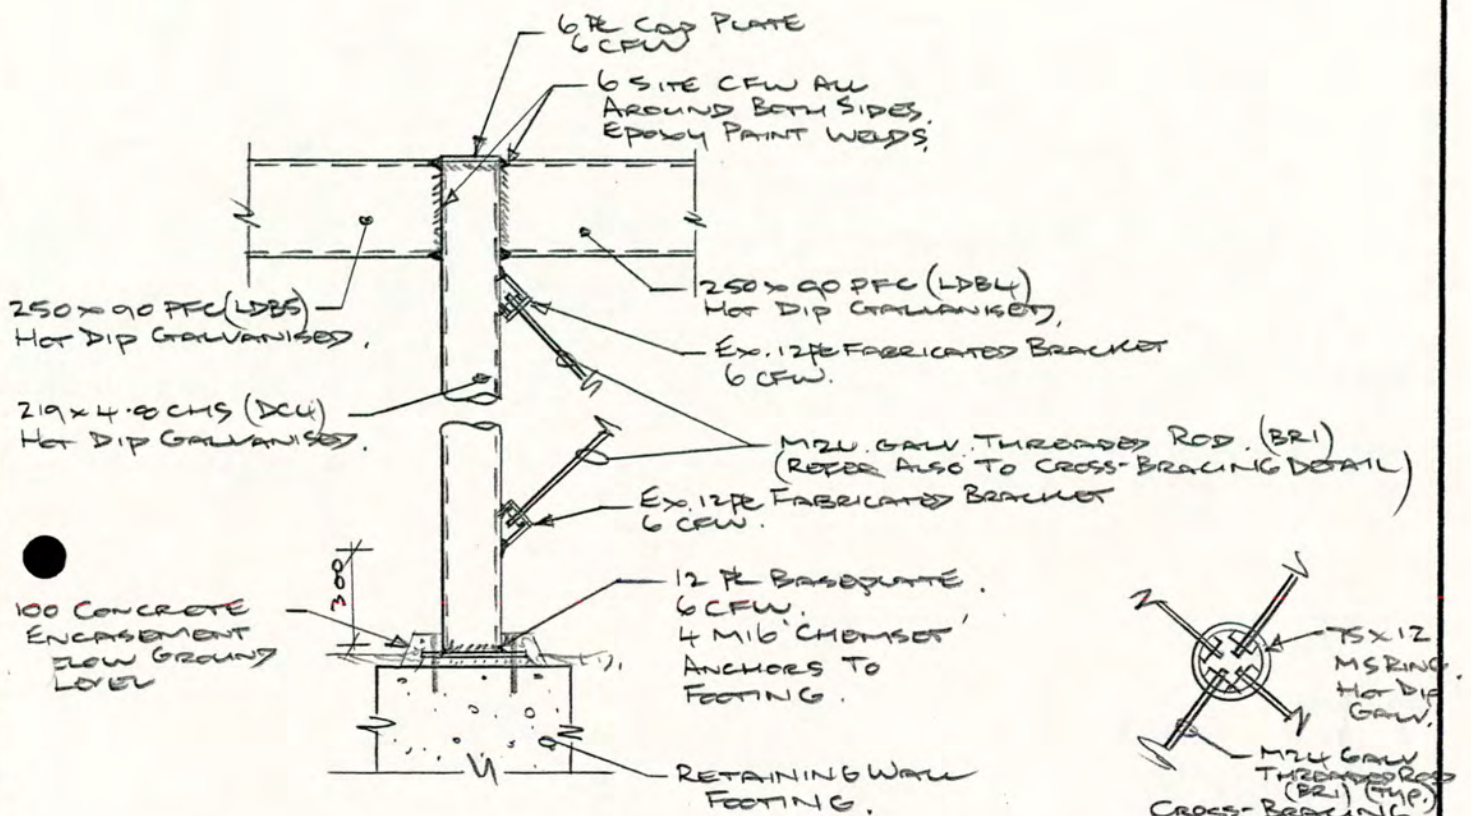 6 PL CAP PLATE
6 CFW
6 SITE CFW ALL
AROUND BOTH SIDES.
EPOXY PAINT WELDS.
250 x 90 PFC (LDB5)
HOT DIP GALVANISED.
250 x 90 PFC (LDB4)
HOT DIP GALVANISED.
EX. 12PL FABRICATED BRACKET
6 CFW.
219 x 4.8 CHS (DC4)
HOT DIP GALVANISED.
M24 GALV. THREADED ROD. (BR1)
(REFER ALSO TO CROSS-BRACING DETAIL)
EX. 12PL FABRICATED BRACKET
6 CFW.
300
12 PL BASEPLATE.
6 CFW.
4 M16 'CHEMSET'
ANCHORS TO
FOOTING.
100 CONCRETE
ENCASEMENT
BELOW GROUND
LEVEL
RETAINING WALL
FOOTING.
75 x 12
MS RING.
HOT DIP
GALV.
M24 GALV
THREADED ROD
(BR1) (TYP.)
CROSS-BRACING